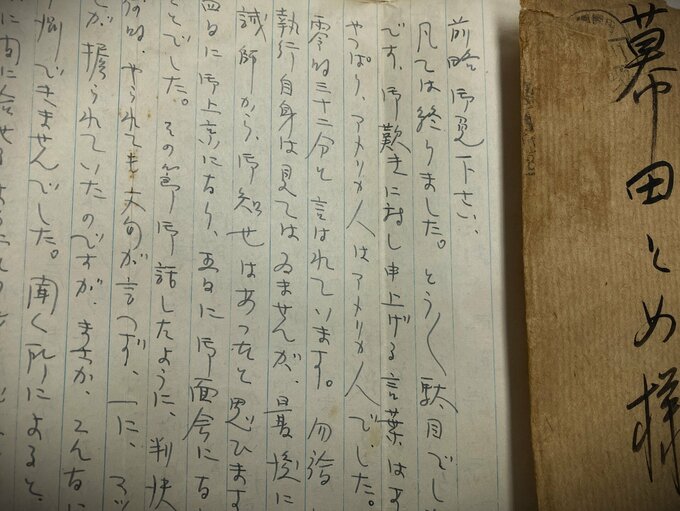 幕田とめ様
前略御免下さい、
凡ては終りました。とう〱駄目でし
です、御歎きに対し申上げる言葉は
やっぱり、アメリカ人はアメリカ人でした。
零時三十二分と言はれています。勿論
執行自身は見てはゐませんが、最後に
誡師から、御知せはあったと思ひます
四日に御上京になり、五日に御面会にな
ことでした。その節御話したように、判決
何時、やられても文句が言へず、一に、マッ
が握られていたのですが、まさか、こんなに
測できませんでした。聞く所によると、
に間に合せるように